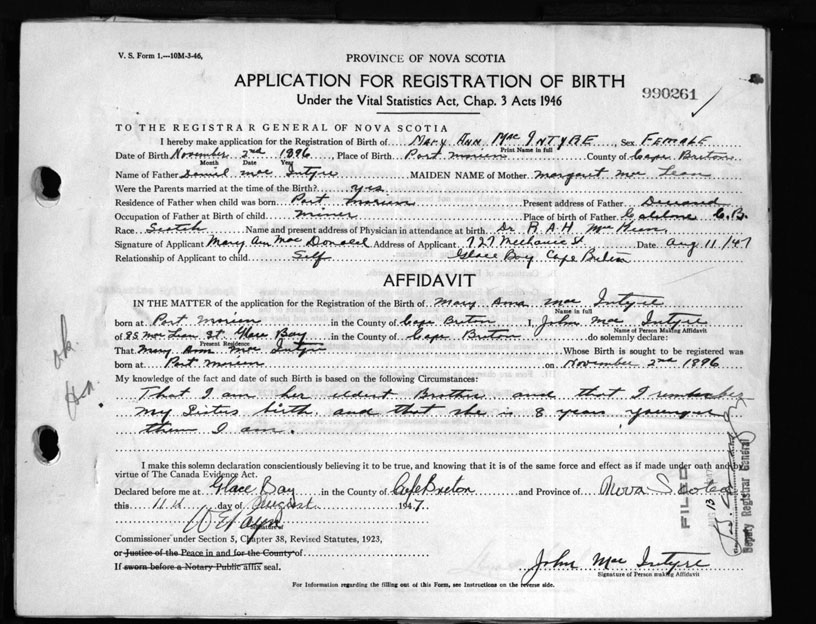 V. S. Form 1.—10M-3-46,
PROVINCE OF NOVA SCOTIA
APPLICATION FOR REGISTRATION OF BIRTH
990261
Under the Vital Statistics Act, Chap. 3 Acts 1946
TO THE REGISTRAR GENERAL OF NOVA SCOTIA
I hereby make application for the Registration of Birth of Mary Ann Mac INTYRE, Sex FEMALE
Print Name in full
Date of Birth November 2nd 1896, Place of Birth Port Morien County of Cape Breton
Month Date Year
Name of Father Daniel Mc Intyre MAIDEN NAME of Mother Margaret Mc Lean
Were the Parents married at the time of the Birth? yes
Residence of Father when child was born Port Morien Present address of Father Deceased
Occupation of Father at Birth of child miner Place of birth of Father Catalone C.B.
Race Scotch Name and present address of Physician in attendance at birth Dr. R.A.H.
Signature of Applicant Mary Ann Mac Donald Address of Applicant 727 Mechanic St Date Aug 11/47
Relationship of Applicant to child Self Glace Bay Cape Breton
AFFIDAVIT
IN THE MATTER of the application for the Registration of the Birth of Mary Ann Mac Intyre
Name in full
born at Port Morien in the County of Cape Breton I, John Mac Intyre
Name of Person Making Affidavit
of 85 Mc Lean St. Glace Bay in the County of Cape Breton do solemnly declare:
Present Residence
That Mary Ann Mc Intyre Whose Birth is sought to be registered was
born at Port Morien on November 2nd 1896
My knowledge of the fact and date of such Birth is based on the following Circumstances:
That I am her eldest Brother and that I remember
my Sisters birth and that she is 8 years younger
them I am.
I make this solemn declaration conscientiously believing it to be true, and knowing that it is of the same force and effect as if made under oath and by
virtue of The Canada Evidence Act.
Declared before me at Glace Bay in the County of Cape Breton and Province of Nova Scotia
this 11th day of August 1947
Signature of
Commissioner under Section 5, Chapter 38, Revised Statutes, 1923,
or Justice of the Peace in and for the County of
If sworn before a Notary Public affix seal.
John Mac Intyre
Signature of Person making Affidavit
For Information regarding the filling out of this Form, see Instructions on the reverse side.
o.k.
FILED
Deputy Registrar General